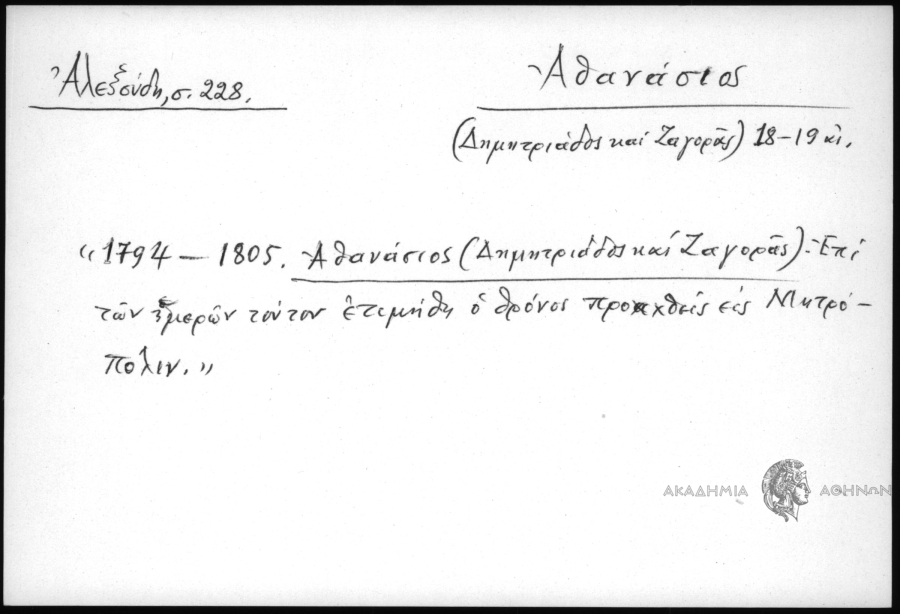 Ἀλεξούδη, σ. 228.
Ἀθανάσιος
(Δημητριάδος καί Ζαγορᾶς) 18-19 αἰ.
"1794 – 1805. Ἀθανάσιος (Δημητριάδος καί Ζαγορᾶς). Ἐπί
τῶν ἡμερῶν τούτου ἐτιμήθη ὁ θρόνος προαχθείς εἰς Μητρό-
πολιν."
ΑΚΑΔΗΜΙΑ ΑΘΗΝΩΝ